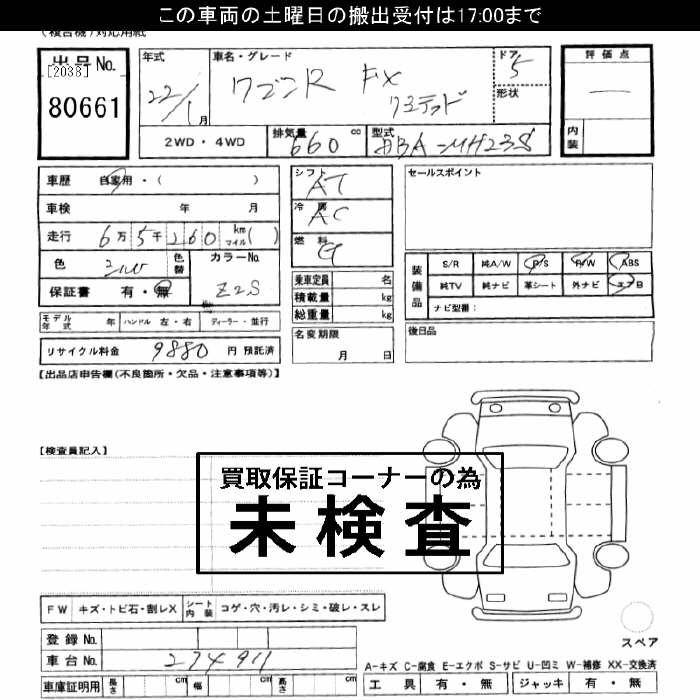 この車両の土曜日の搬出受付は17:00まで
(複合機)対応用紙
出品No.
[2038]
80661
年式
22/1月
車名・グレード
ワゴンR FX
リミテッド
ドア
5
形状
評価点
—
内装
2WD・4WD
排気量 660 cc
型式 DBA-MH23S
車歴 自家用・( )
車検 年 月
走行 6万5千260 km マイル( )
色 シルバ
色替
カラーNo. Z2S
保証書 有・無
モデル年式 年 ハンドル 左・右 ディーラー・並行
リサイクル料金 9880 円 預託済
シフト AT
冷房 AC
燃料 G
乗車定員 名
積載量 kg
総重量 kg
名変期限
月 日
セールスポイント
装備品
S/R 純A/W P/S P/W ABS
純TV 純ナビ 革シート 外ナビ エアB
ナビ型番:
後日品
【出品店申告欄(不良箇所・欠品・注意事項等)】
【検査員記入】
買取保証コーナーの為
未検査
FW キズ・トビ石・割レX シート内装 コゲ・穴・汚レ・シミ・破レ・スレ
登録No.
車台No. 274911
車庫証明用 長さ cm 幅 cm 高さ cm
スペア
A-キズ C-腐食 E-エクボ S-サビ U-凹ミ W-補修 XX-交換済
工具 有・無 ジャッキ 有・無